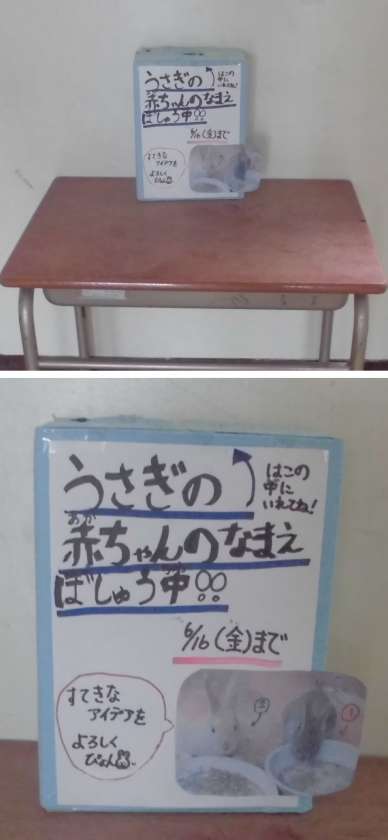 うさぎの
はこの
中に
いれてね!
赤ちゃんのなまえ
ぼしゅう中!!
6/16(金)まで
すてきな
アイデアを
よろしく
ぴょん
うさぎの
はこの
中に
いれてね!
あか
赤ちゃんのなまえ
ぼしゅう中!!
6/16(金)まで
すてきな
アイデアを
よろしく
ぴょん